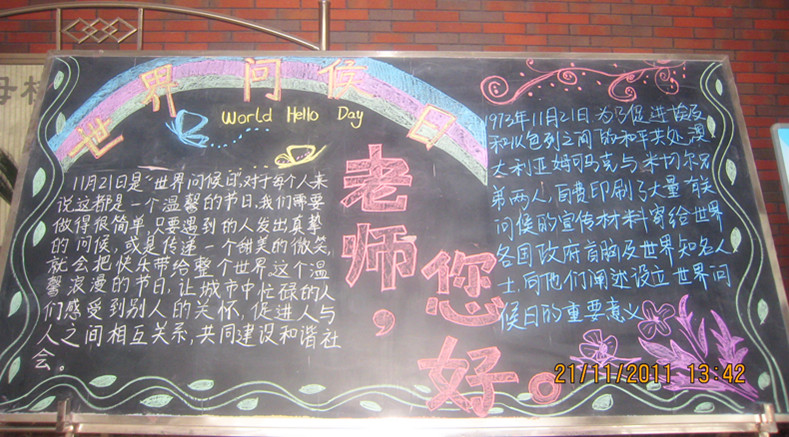 世界问候日
World Hello Day
11月21日是“世界问候日”,对于每个人来
说这都是一个温馨的节日,我们需要
做得很简单,只要遇到的人发出真挚
的问候,或是传递一个甜美的微笑,
就会把快乐带给整个世界,这个温
馨浪漫的节日,让城市中忙碌的人
们感受到别人的关怀,促进人与
人之间相互关系,共同建设和谐社
会。
老师,
您好。
1973年11月21日为了促进埃及
和以色列之间的和平共处,澳
大利亚姆可马克与米切尔兄
弟两人,自费印刷了大量有关
问候的宣传材料寄给世界
各国政府首脑及世界知名人
士,向他们阐述设立世界问
候日的重要意义
21/11/2011 13:42